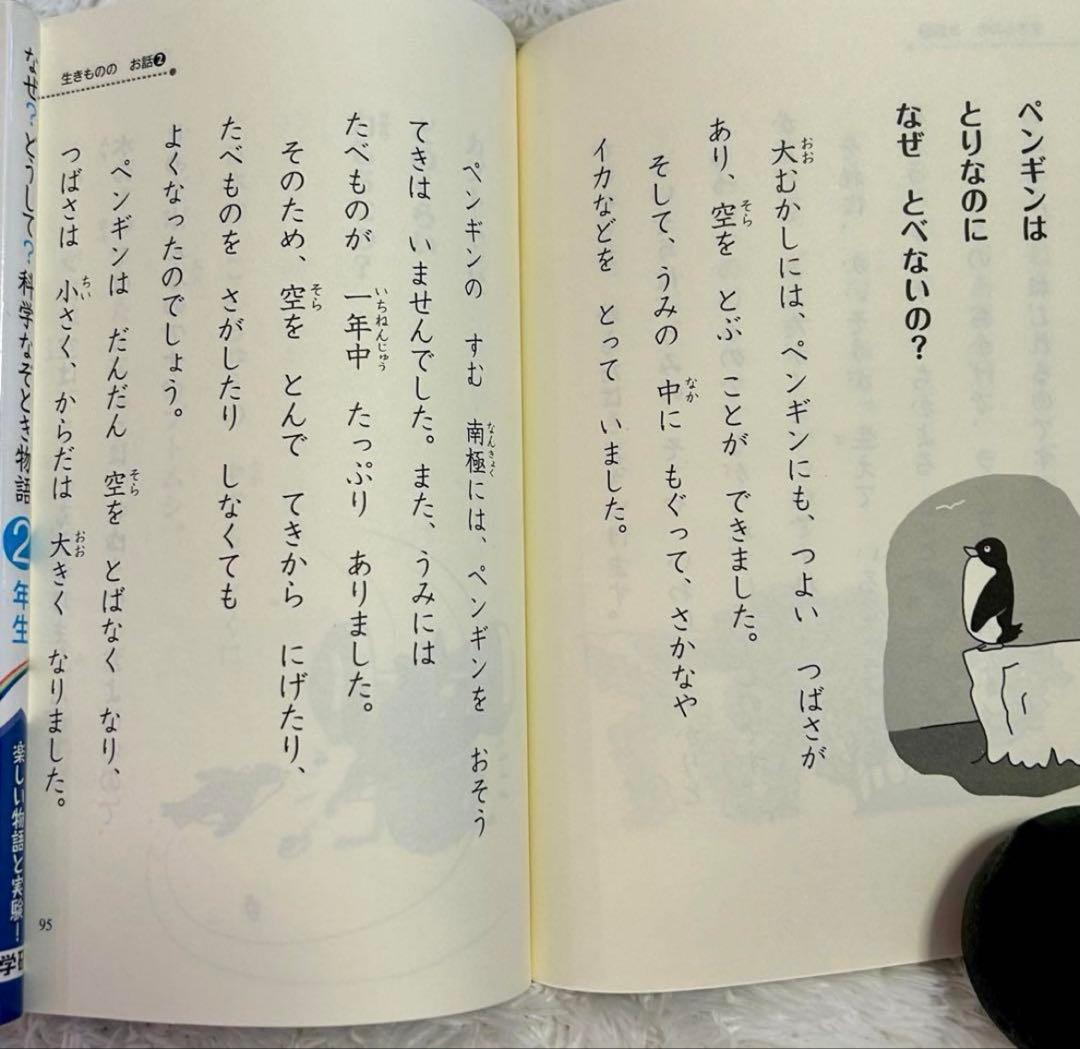 ペンギンは
とりなのに
なぜ とべないの？
大むかしには、ペンギンにも、つよい つばさが
おお
あり、空を とぶ ことが できました。
そら
そして、うみの 中に もぐって、さかなや
なか
イカなどを とって いました。
生きものの お話❷
ペンギンの すむ 南極には、ペンギンを おそう
なんきょく
てきは いませんでした。また、うみには
たべものが 一年中 たっぷり ありました。
いちねんじゅう
そのため、空を とんで てきから にげたり、
そら
たべものを さがしたり しなくても
よくなったのでしょう。
ペンギンは だんだん 空を とばなく なり、
そら
つばさは 小さく、からだは 大きく なりました。
ちい
おお
95
なぜ？どうして？科学なぞとき物語
2年生
楽しい物語と実験！